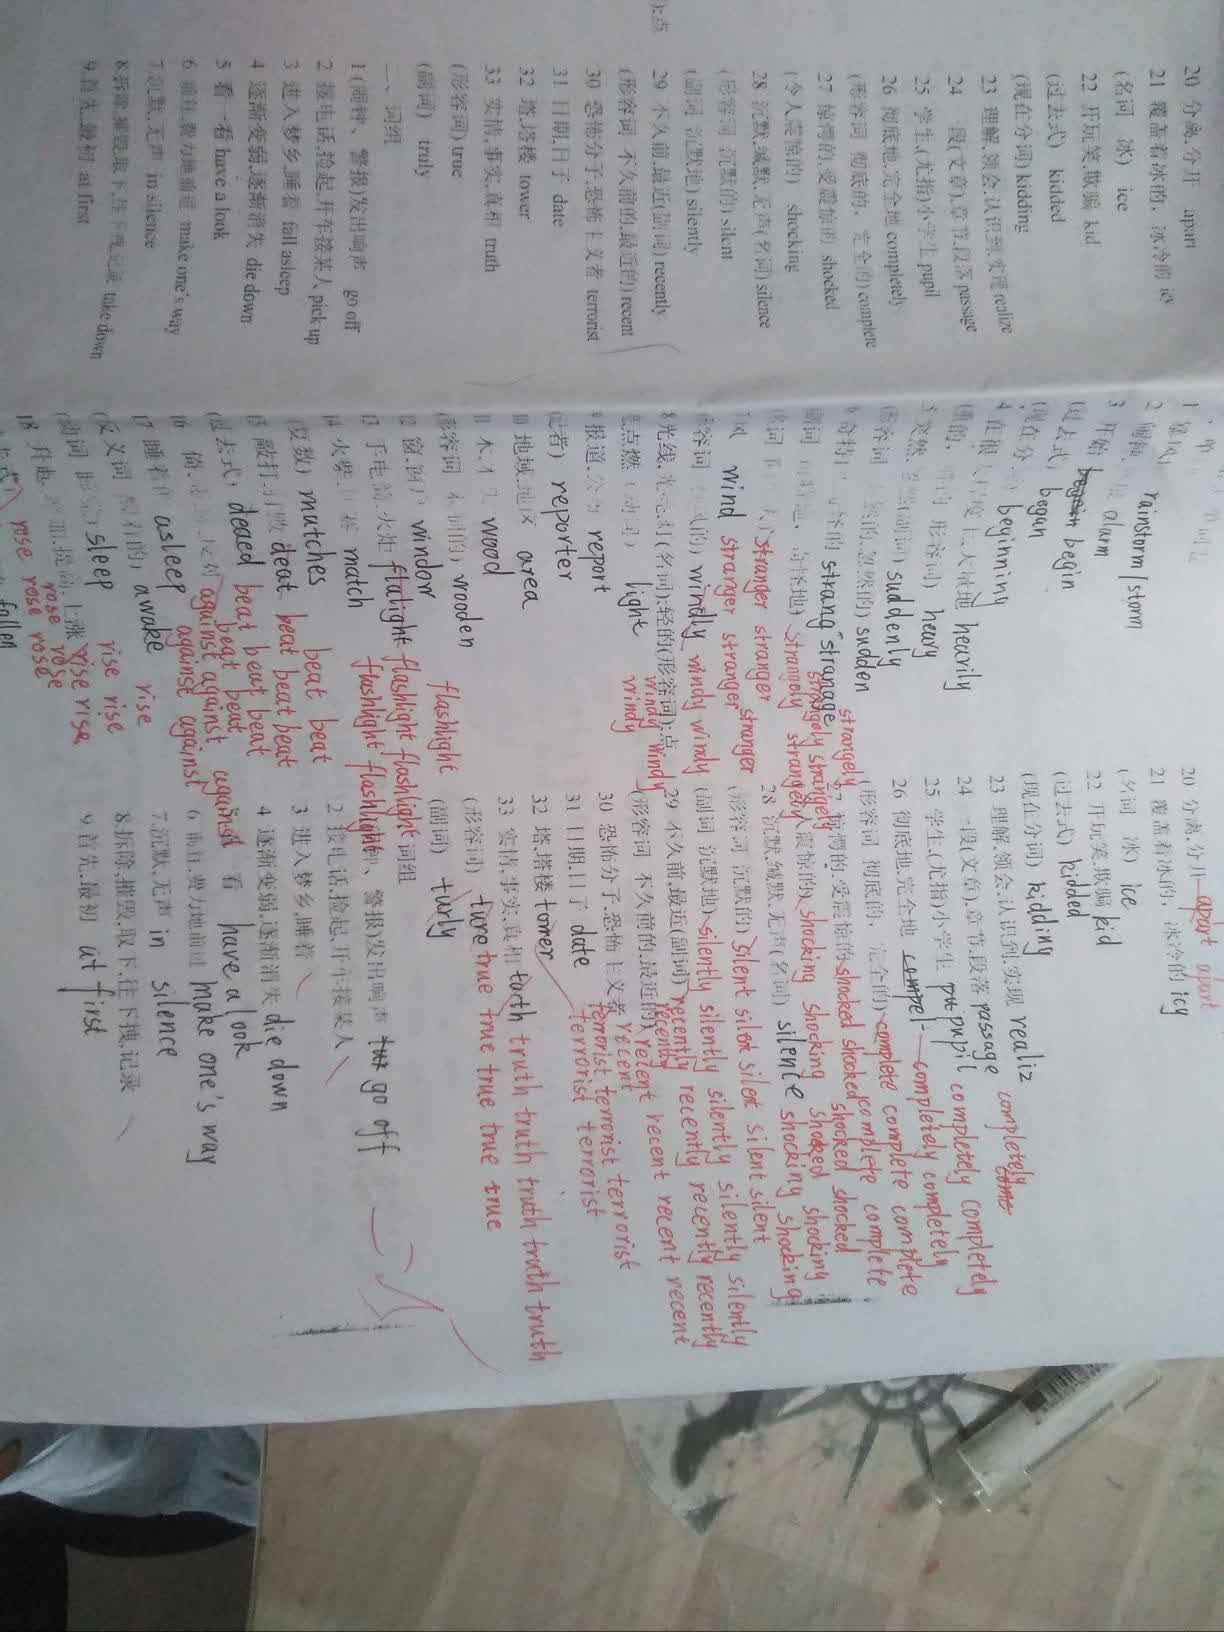 20 分离,分开 apart
21 覆盖着冰的, 冰冷的 icy
(名词 冰) ice
22 开玩笑,欺骗 kid
(过去式) kidded
(现在分词) kidding
23 理解,领会,认识到,实现 realize
24 一段(文章),章节,段落 passage
25 学生(尤指)小学生 pupil
26 彻底地,完全地 completely
(形容词 彻底的, 完全的) complete
27 惊愕的,受震惊的 shocked
(令人震惊的) shocking
28 沉默,缄默,无声(名词) silence
(形容词 沉默的) silent
(副词 沉默地) silently
29 不久前,最近(副词) recently
(形容词 不久前的,最近的) recent
30 恐怖分子,恐怖主义者 terrorist
31 日期,日子 date
32 塔,塔楼 tower
33 实情,事实,真相 truth
(形容词) true
(副词) truly
二、词组
1 (闹钟、警报)发出响声 go off
2 接电话,捡起,开车接某人 pick up
3 进入梦乡,睡着 fall asleep
4 逐渐变弱,逐渐消失 die down
5 看一看 have a look
6 前往,费力地前进 make one's way
7 沉默,无声 in silence
8 拆除,摧毁,取下,往下拽,记录 take down
9 首先,最初 at first
rainstorm/storm
alarm
3 开始 begin
(过去式) began
beginning
heavily
heavy
suddenly
sudden
strang stranage
strangely strangely strangely
strangely strangely
stranger stranger stranger
wind stranger stranger
windly windy windy windy windy
8 光线,光,光亮(名词);轻的(形容词);点
light windy windy
report
reporter
10 地域,地区 area
wood
wooden
window flashlight
flatight flashlight flashlight flashlight
14 火柴 match flashlight flashlight
(复数) mutches beat beat
deat beat beat beat
(过去式) deaed beat beat beat
beat beat
against against against
against against
asleep
awake rise
sleep rise rise
rise rise
rose rose rose
rose rose rose
fallen
20 分离,分开 apart apart
21 覆盖着冰的, 冰冷的 icy
(名词 冰) ice
22 开玩笑,欺骗 kid
(过去式) kidded
(现在分词) kidding
23 理解,领会,认识到,实现 realiz
24 一段(文章),章节,段落 passage completely
25 学生(尤指)小学生 pupil completely completely
26 彻底地,完全地 compel completely completely
(形容词 彻底的, 完全的) complete complete complete
complete complete
惊愕的,受震惊的 shocked shocked shocked shocked
人震惊的) shocking shocking shocked shocking
28 沉默,缄默,无声(名词) silence shocking shocking
(形容词 沉默的) silent silent silent silent silent
(副词 沉默地) silently silently silently silently silently
29 不久前,最近(副词) recently recently recently recently recently
(形容词 不久前的,最近的) recent recent recent recent recent
30 恐怖分子,恐怖主义者 terrorist terrorist terrorist
31 日期,日子 date terrorist terrorist
32 塔,塔楼 tomer
33 实情,事实,真相 turth truth truth truth truth truth
(形容词) ture true true true true true
(副词) turly
词组
警报)发出响声 go off
2 接电话,捡起,开车接某人
3 进入梦乡,睡着
4 逐渐变弱,逐渐消失 die down
看 have a look
6 前往,费力地前进 make one's way
7 沉默,无声 in silence
8 拆除,摧毁,取下,往下拽,记录
9 首先,最初 at first